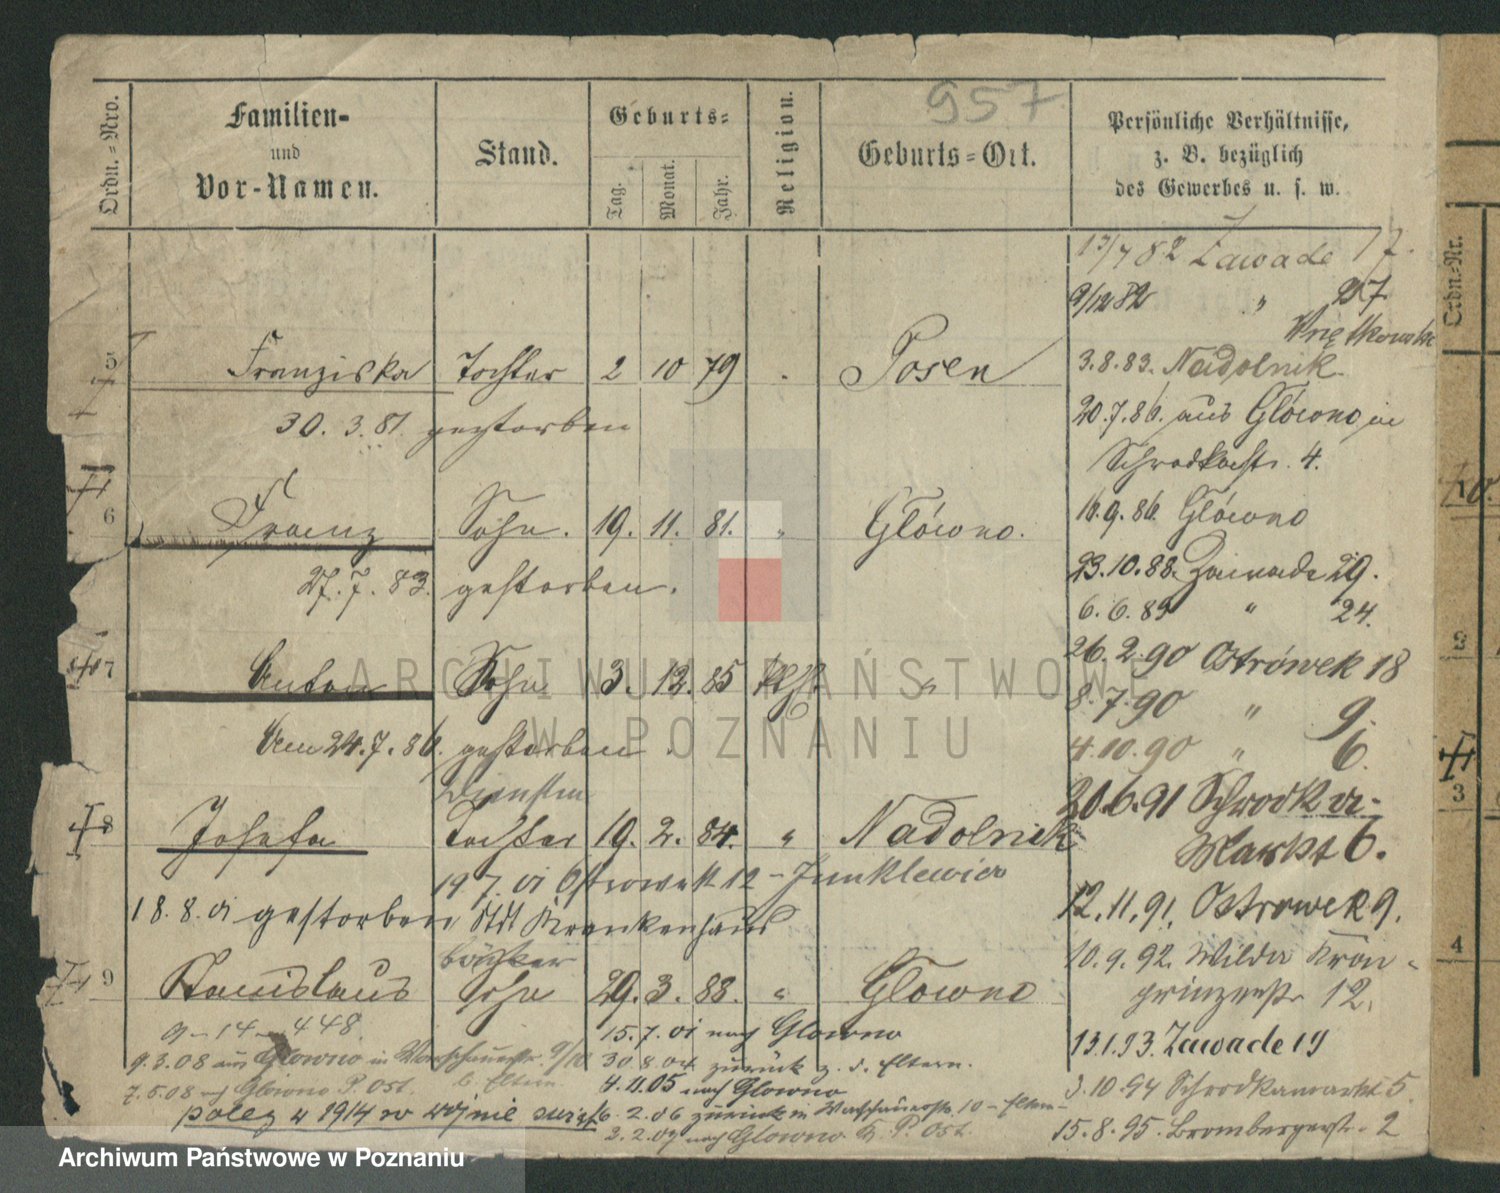 957
Ordn.=Nro.
Familien-
und
Vor-Namen.
Stand.
Geburts=
Tag.
Monat.
Jahr.
Religion.
Geburts=Ort.
Persönliche Verhältnisse,
z. B. bezüglich
des Gewerbes u. s. w.
13/7 82 Zawade 17.
9/12 82 " 27
5 Franziska Tochter 2 10 79 . Posen
30. 3. 81. gestorben
6 Franz Sohn. 19. 11. 81. " Glówno.
27. 7. 83. gestorben.
7 Anton Sohn 3. 12. 85 kth. "
Am 24. 7. 86. gestorben.
Dienstm
8 Josefa Tochter 19. 2. 84. " Nadolnik
19 7. 01 Ostrowek 12 - Junklewicz
18. 8. 01 gestorben Stdt Krankenhaus
9 Stanislaus Sohn 29. 3. 88. " Glowno
9 - 14 - 448
15. 7. 01 nach Glowno
9. 3. 08 aus Glowno in Warschauerstr.
30 8. 04 zurück z. d. Eltern.
b. Eltern
4. 11. 05 nach Glowno
7. 5. 08 nach Glowno P. Ost.
6. 2. 06 zurück in Warschauerstr. 10 - Eltern -
poleg w 1914 w wojnie
2. 2. 07 nach Glowno K. P. Ost.
3. 8. 83. Nadolnik
20. 7. 86. aus Glówno in
Schrodkastr. 4.
16. 9. 86. Glówno
23. 10. 88. Zawade 29.
6. 6. 89 " 24.
26. 2. 90 Ostrówek 18
8. 7. 90 " 9.
4. 10. 90 " 6.
20. 6. 91 Schrodka-
Markt 6.
12. 11. 91. Ostrowek 9.
10. 9. 92. Wilda Kron-
prinzenstr 12.
13. 1. 93. Zawade 19
3. 10. 94 Schrodkamarkt 5.
15. 8. 95. Brombergerstr. 2
Ordn.=Nr.
1
2
3
4
ARCHIWUM PAŃSTWOWE
W POZNANIU
Archiwum Państwowe w Poznaniu